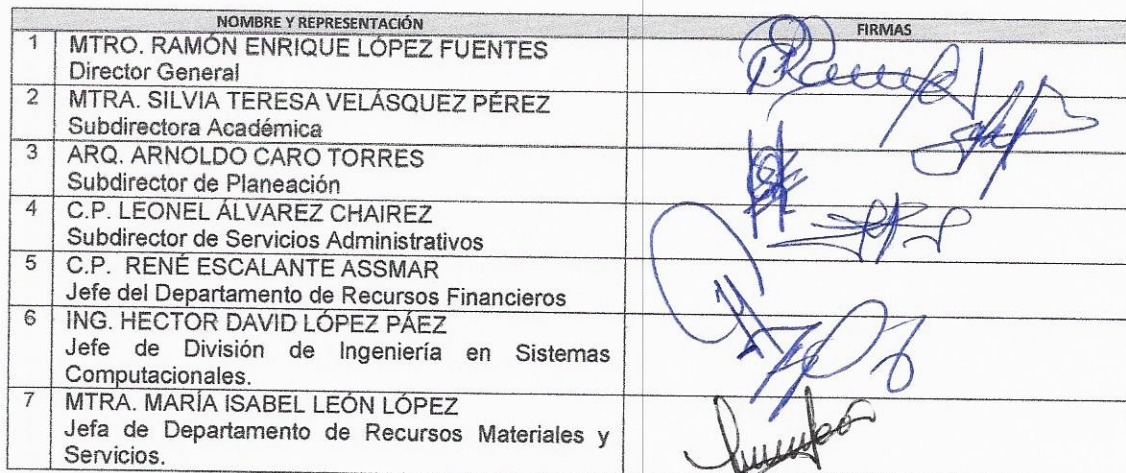 NOMBRE Y REPRESENTACIÓN FIRMAS
1 MTRO. RAMÓN ENRIQUE LÓPEZ FUENTES
Director General
2 MTRA. SILVIA TERESA VELÁSQUEZ PÉREZ
Subdirectora Académica
3 ARQ. ARNOLDO CARO TORRES
Subdirector de Planeación
4 C.P. LEONEL ÁLVAREZ CHAIREZ
Subdirector de Servicios Administrativos
5 C.P. RENÉ ESCALANTE ASSMAR
Jefe del Departamento de Recursos Financieros
6 ING. HECTOR DAVID LÓPEZ PÁEZ
Jefe de División de Ingeniería en Sistemas
Computacionales.
7 MTRA. MARÍA ISABEL LEÓN LÓPEZ
Jefa de Departamento de Recursos Materiales y
Servicios.